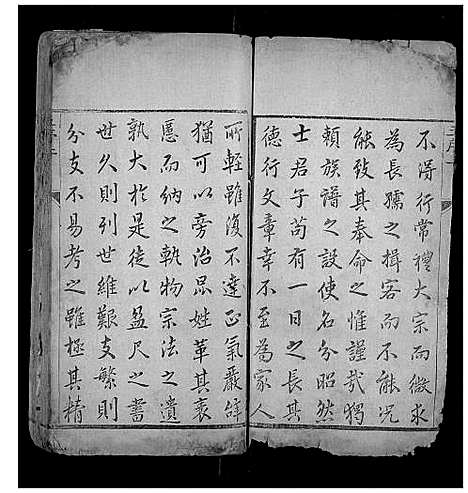 不得行常禮大宗而微求
為長孺之揖客而不能況
能致其奉命之惟謹哉獨
賴族譜之設使名分昭然
士君子苟有一日之長其
德行文章幸不至為家人
所輕雖復不達正氣嚴辭
猶可以旁治昆姓革其衷
慝而納之軌物宗法之遺
孰大於是徒以盈尺之書
世久則列世維艱支繁則
分支不易考之雖極其精